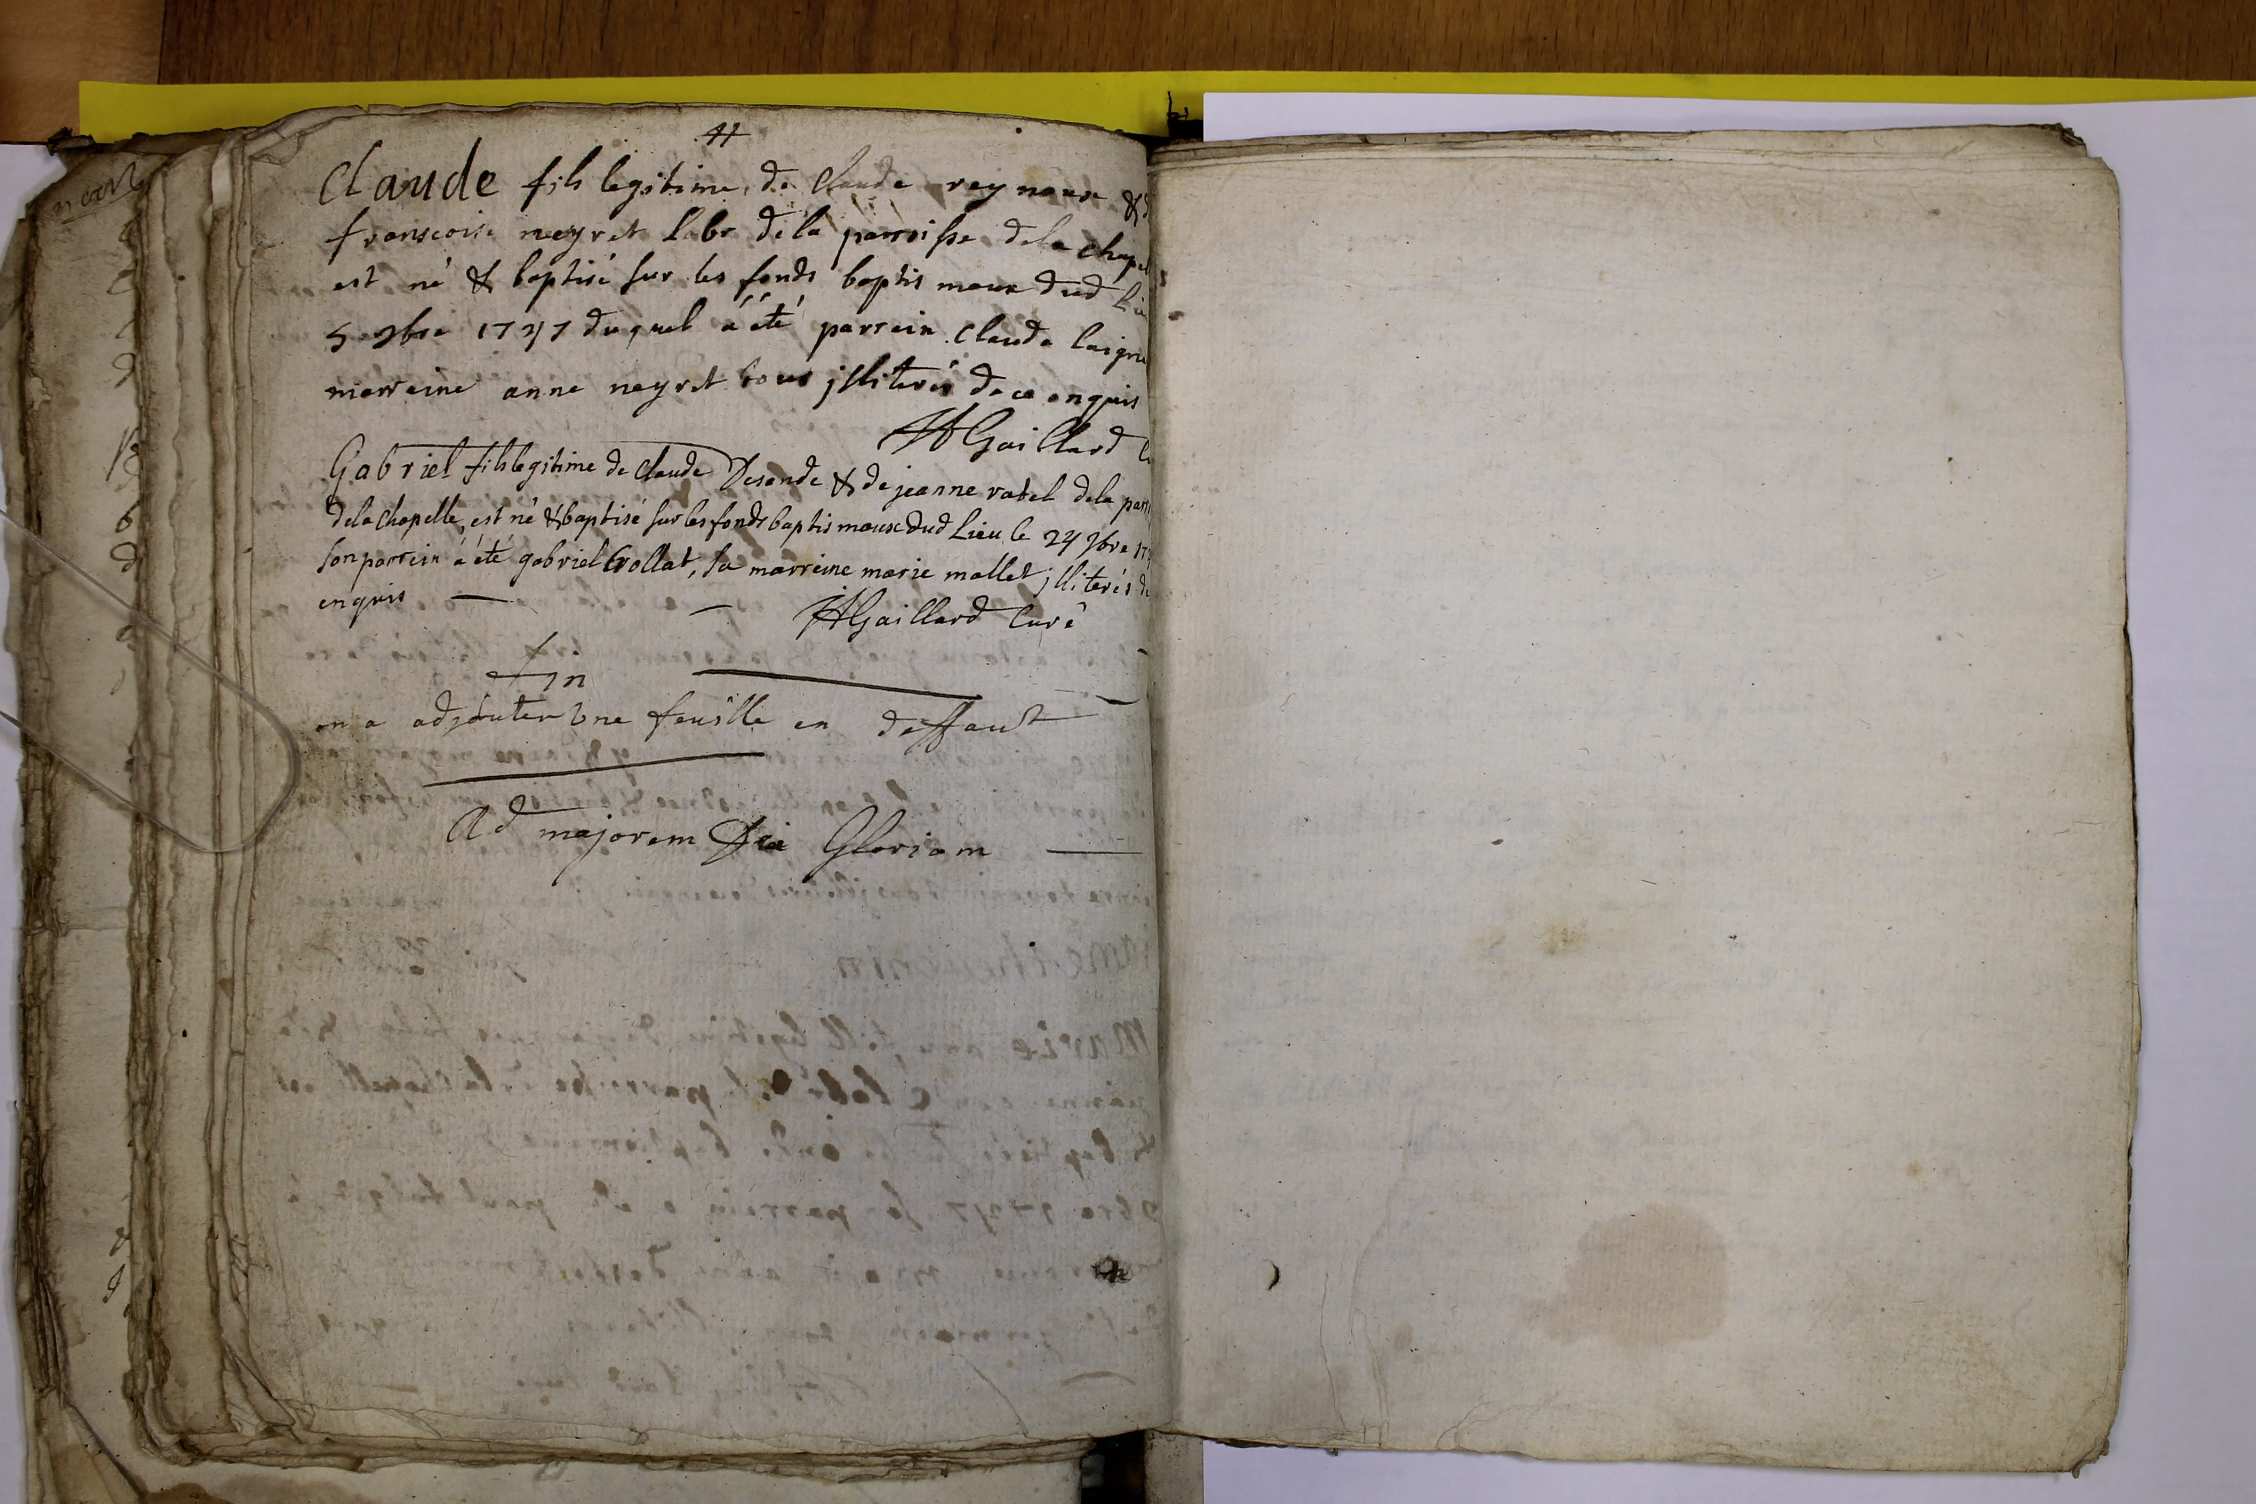 Claude fils legitime de Claude reynaux & d
franscoise neyret labr de la parroisse de la chapel
est né & baptisé sur les fonds baptis maux dud lieu
5 9bre 1747 du quel a été parrein Claude
marreine anne neyret tous illiterés de ce enquis
Gaillard
Gabriel fils legitime de claude Desande & de jeanne ratel de la parr
de la chapelle, est né & baptisé sur les fonds baptis maux dud Lieu le 24 9bre 17
son parrein a été gabriel Crollat, sa marreine marie mallet illiterés de
enquis — — Gaillard Curé
fin
on a adjouter une feuille en deffaut
Ad majorem Dei Gloriam